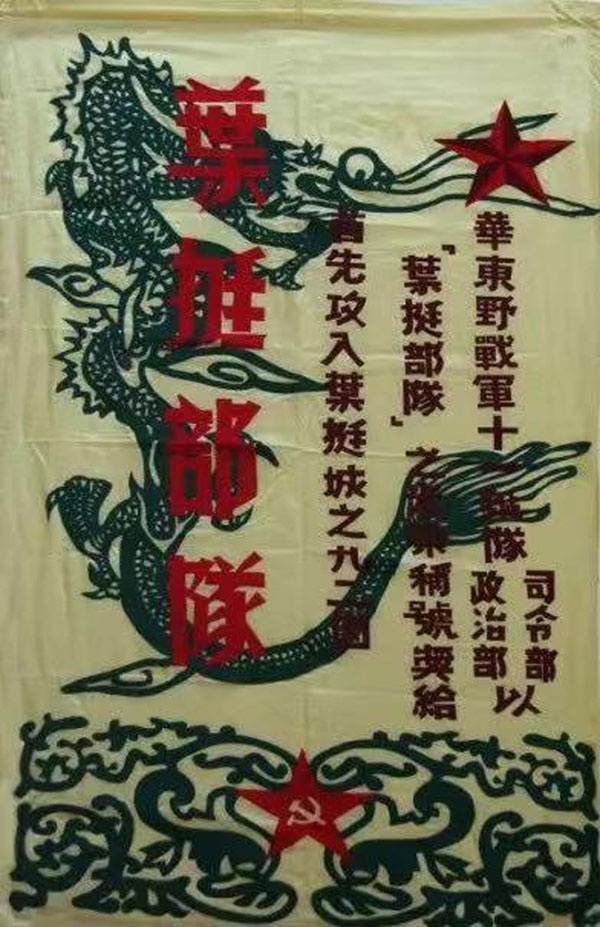 華東野戰軍十一縱隊司令部政治部以
「葉挺部隊」之光榮稱號獎給
首先攻入葉挺城之九二團
葉挺部隊